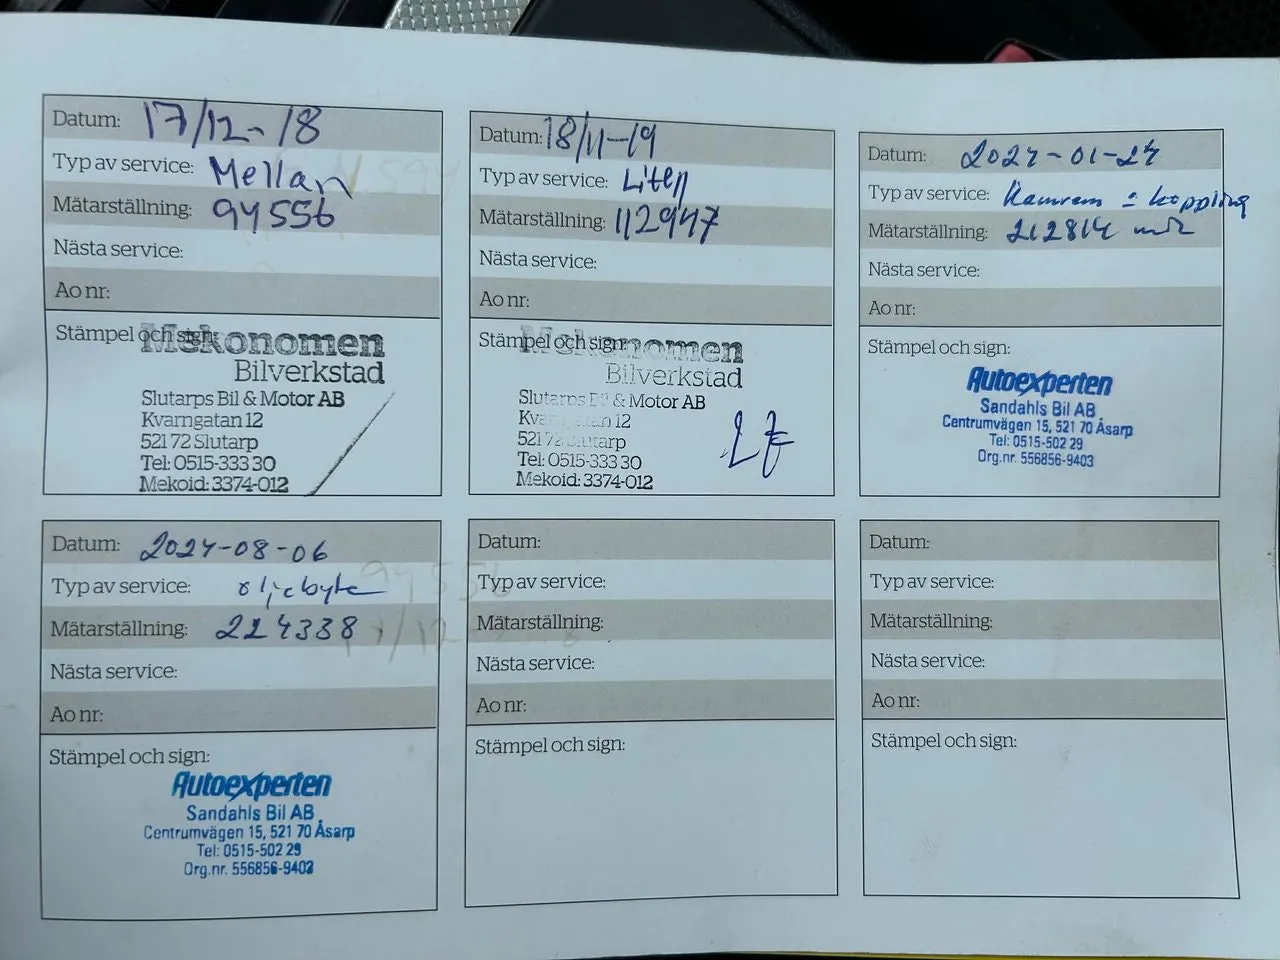 Datum: 17/12-18
Typ av service: Mellan
Mätarställning: 94556
Nästa service:
Ao nr:
Stämpel och sign:
Mekonomen
Bilverkstad
Slutarps Bil & Motor AB
Kvarngatan 12
521 72 Slutarp
Tel: 0515-333 30
Mekoid: 3374-012
Datum: 18/11-19
Typ av service: Liten
Mätarställning: 112947
Nästa service:
Ao nr:
Stämpel och sign:
Mekonomen
Bilverkstad
Slutarps Bil & Motor AB
Kvarngatan 12
521 72 Slutarp
Tel: 0515-333 30
Mekoid: 3374-012
Datum: 2024-01-24
Typ av service: Kamrem + koppling
Mätarställning: 212814
Nästa service:
Ao nr:
Stämpel och sign:
Autoexperten
Sandahls Bil AB
Centrumvägen 15, 521 70 Åsarp
Tel: 0515-502 29
Org.nr. 556856-9403
Datum: 2024-08-06
Typ av service: oljebyte
Mätarställning: 224338
Nästa service:
Ao nr:
Stämpel och sign:
Autoexperten
Sandahls Bil AB
Centrumvägen 15, 521 70 Åsarp
Tel: 0515-502 29
Org.nr. 556856-9403
Datum:
Typ av service:
Mätarställning:
Nästa service:
Ao nr:
Stämpel och sign:
Datum:
Typ av service:
Mätarställning:
Nästa service:
Ao nr:
Stämpel och sign: